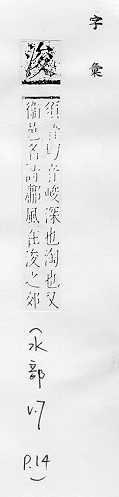 字彙
浚
須晉切音峻深也淘也又
衞邑名詩鄘風在浚之郊
(水部 V.7 P.14)